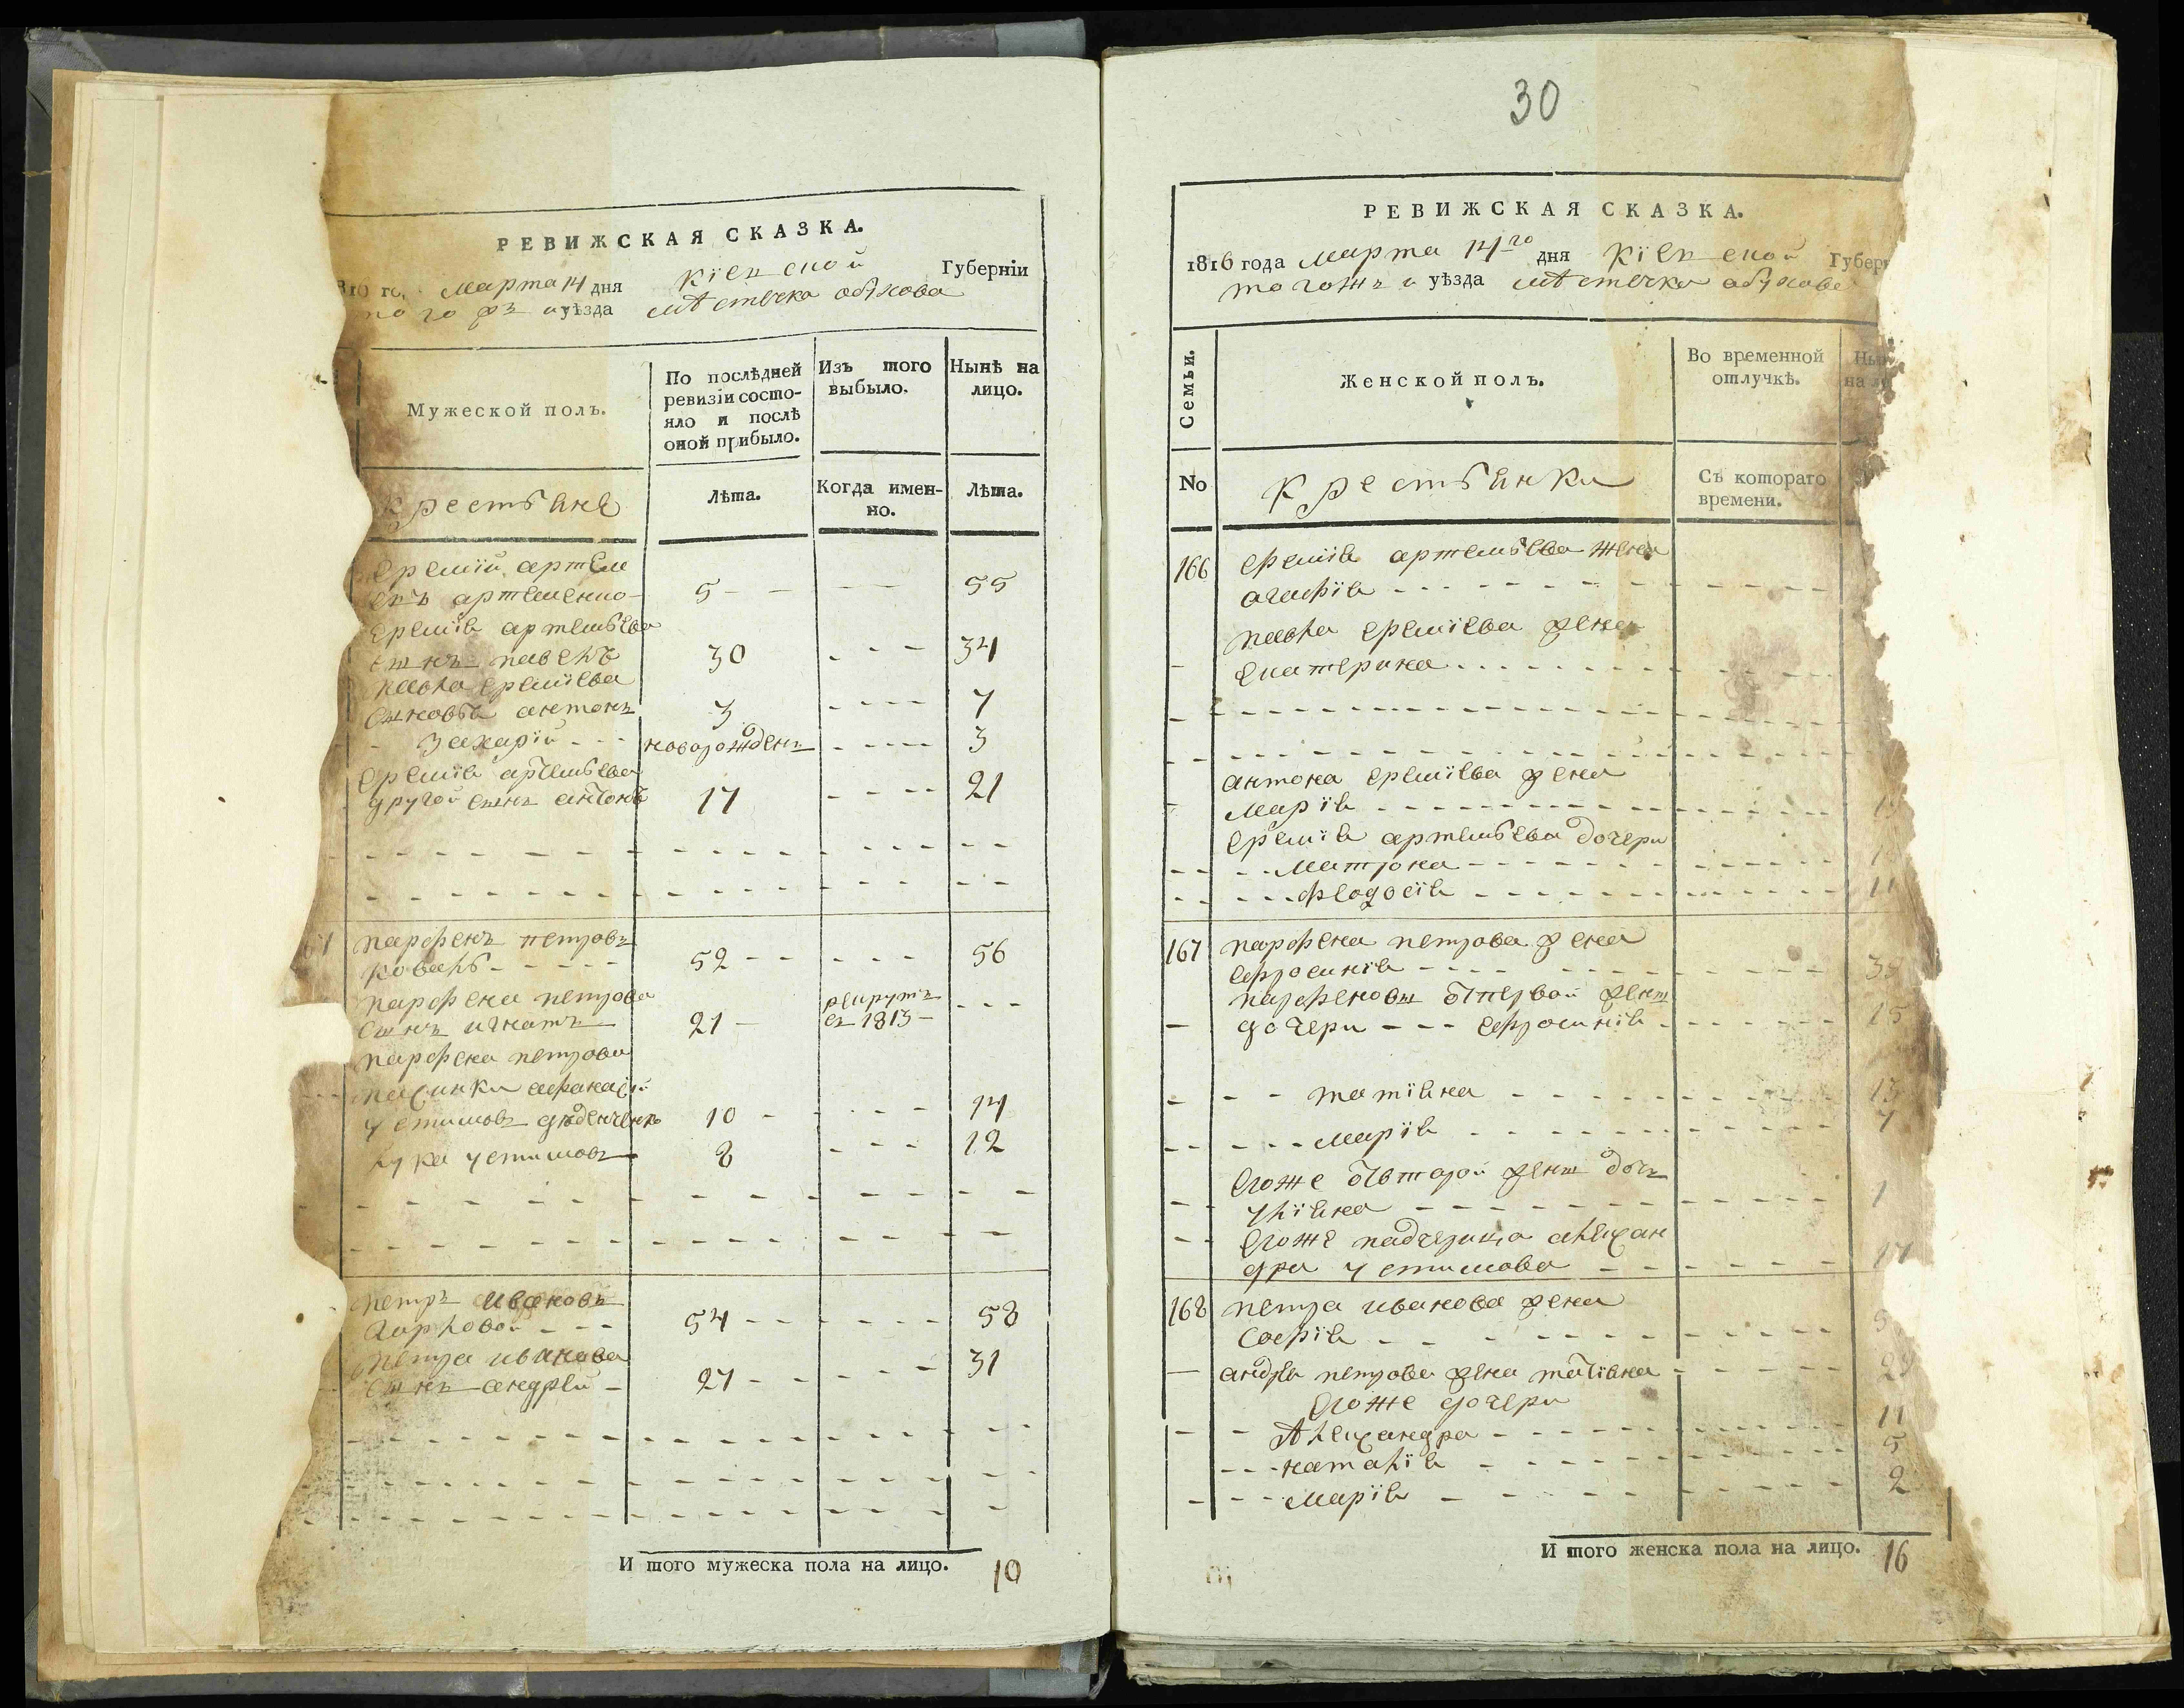 РЕВИЖСКАЯ СКАЗКА.
марта 14 дня Кіевской Губерніи
уѣзда мѣстечка обухова
Мужеской полъ.
По послѣдней ревизіи состояло и послѣ оной прибыло.
Изъ того выбыло.
Нынѣ на лицо.
Крестьяне
Лѣта.
Когда именно.
Лѣта.
Еремій артемі
евъ артеменко 5 55
Еремія артемьева
сынъ павелъ 30 34
павла еремѣева
сыновья антонъ 3 7
Захарій новорожденъ 3
Еремія артемьева
другой сынъ антонъ 17 21
парфенъ петровъ
коваль 52 56
парфена петрова
сынъ игнатъ 21 рекрутъ въ 1813
парфена петрова
пасинки афанасій
устимовъ 10 14
лука устимовъ 8 12
петръ ивановъ
54 58
петра иванова
сынъ андрей 27 31
И того мужеска пола на лицо. 10
30
РЕВИЖСКАЯ СКАЗКА.
1816 года марта 14го дня Кіевской Губер
тогожъ и уѣзда мѣстечка обухова
Семьи.
Женской полъ.
Во временной отлучкѣ.
Ны на
No
Крестьянки
Съ котораго времени.
166 еремія артемьева жена
агафія
павла еремѣева жена
екатерина
антона еремѣева жена
марія
еремія артемьева дочери
матрона
феодосія 11
167 парфена петрова жена
ефросинія
парфеновы отпервой жены
дочери ефросинія 15
татіяна 13
марія 7
егоже отвторой жены дочь
уліяна 1
егоже падчерица алексан
дра устимова 17
168 петра иванова жена
софія
андрея петрова жена татіяна
егоже дочери
Александра 11
наталія 5
марія 2
И того женска пола на лицо. 16